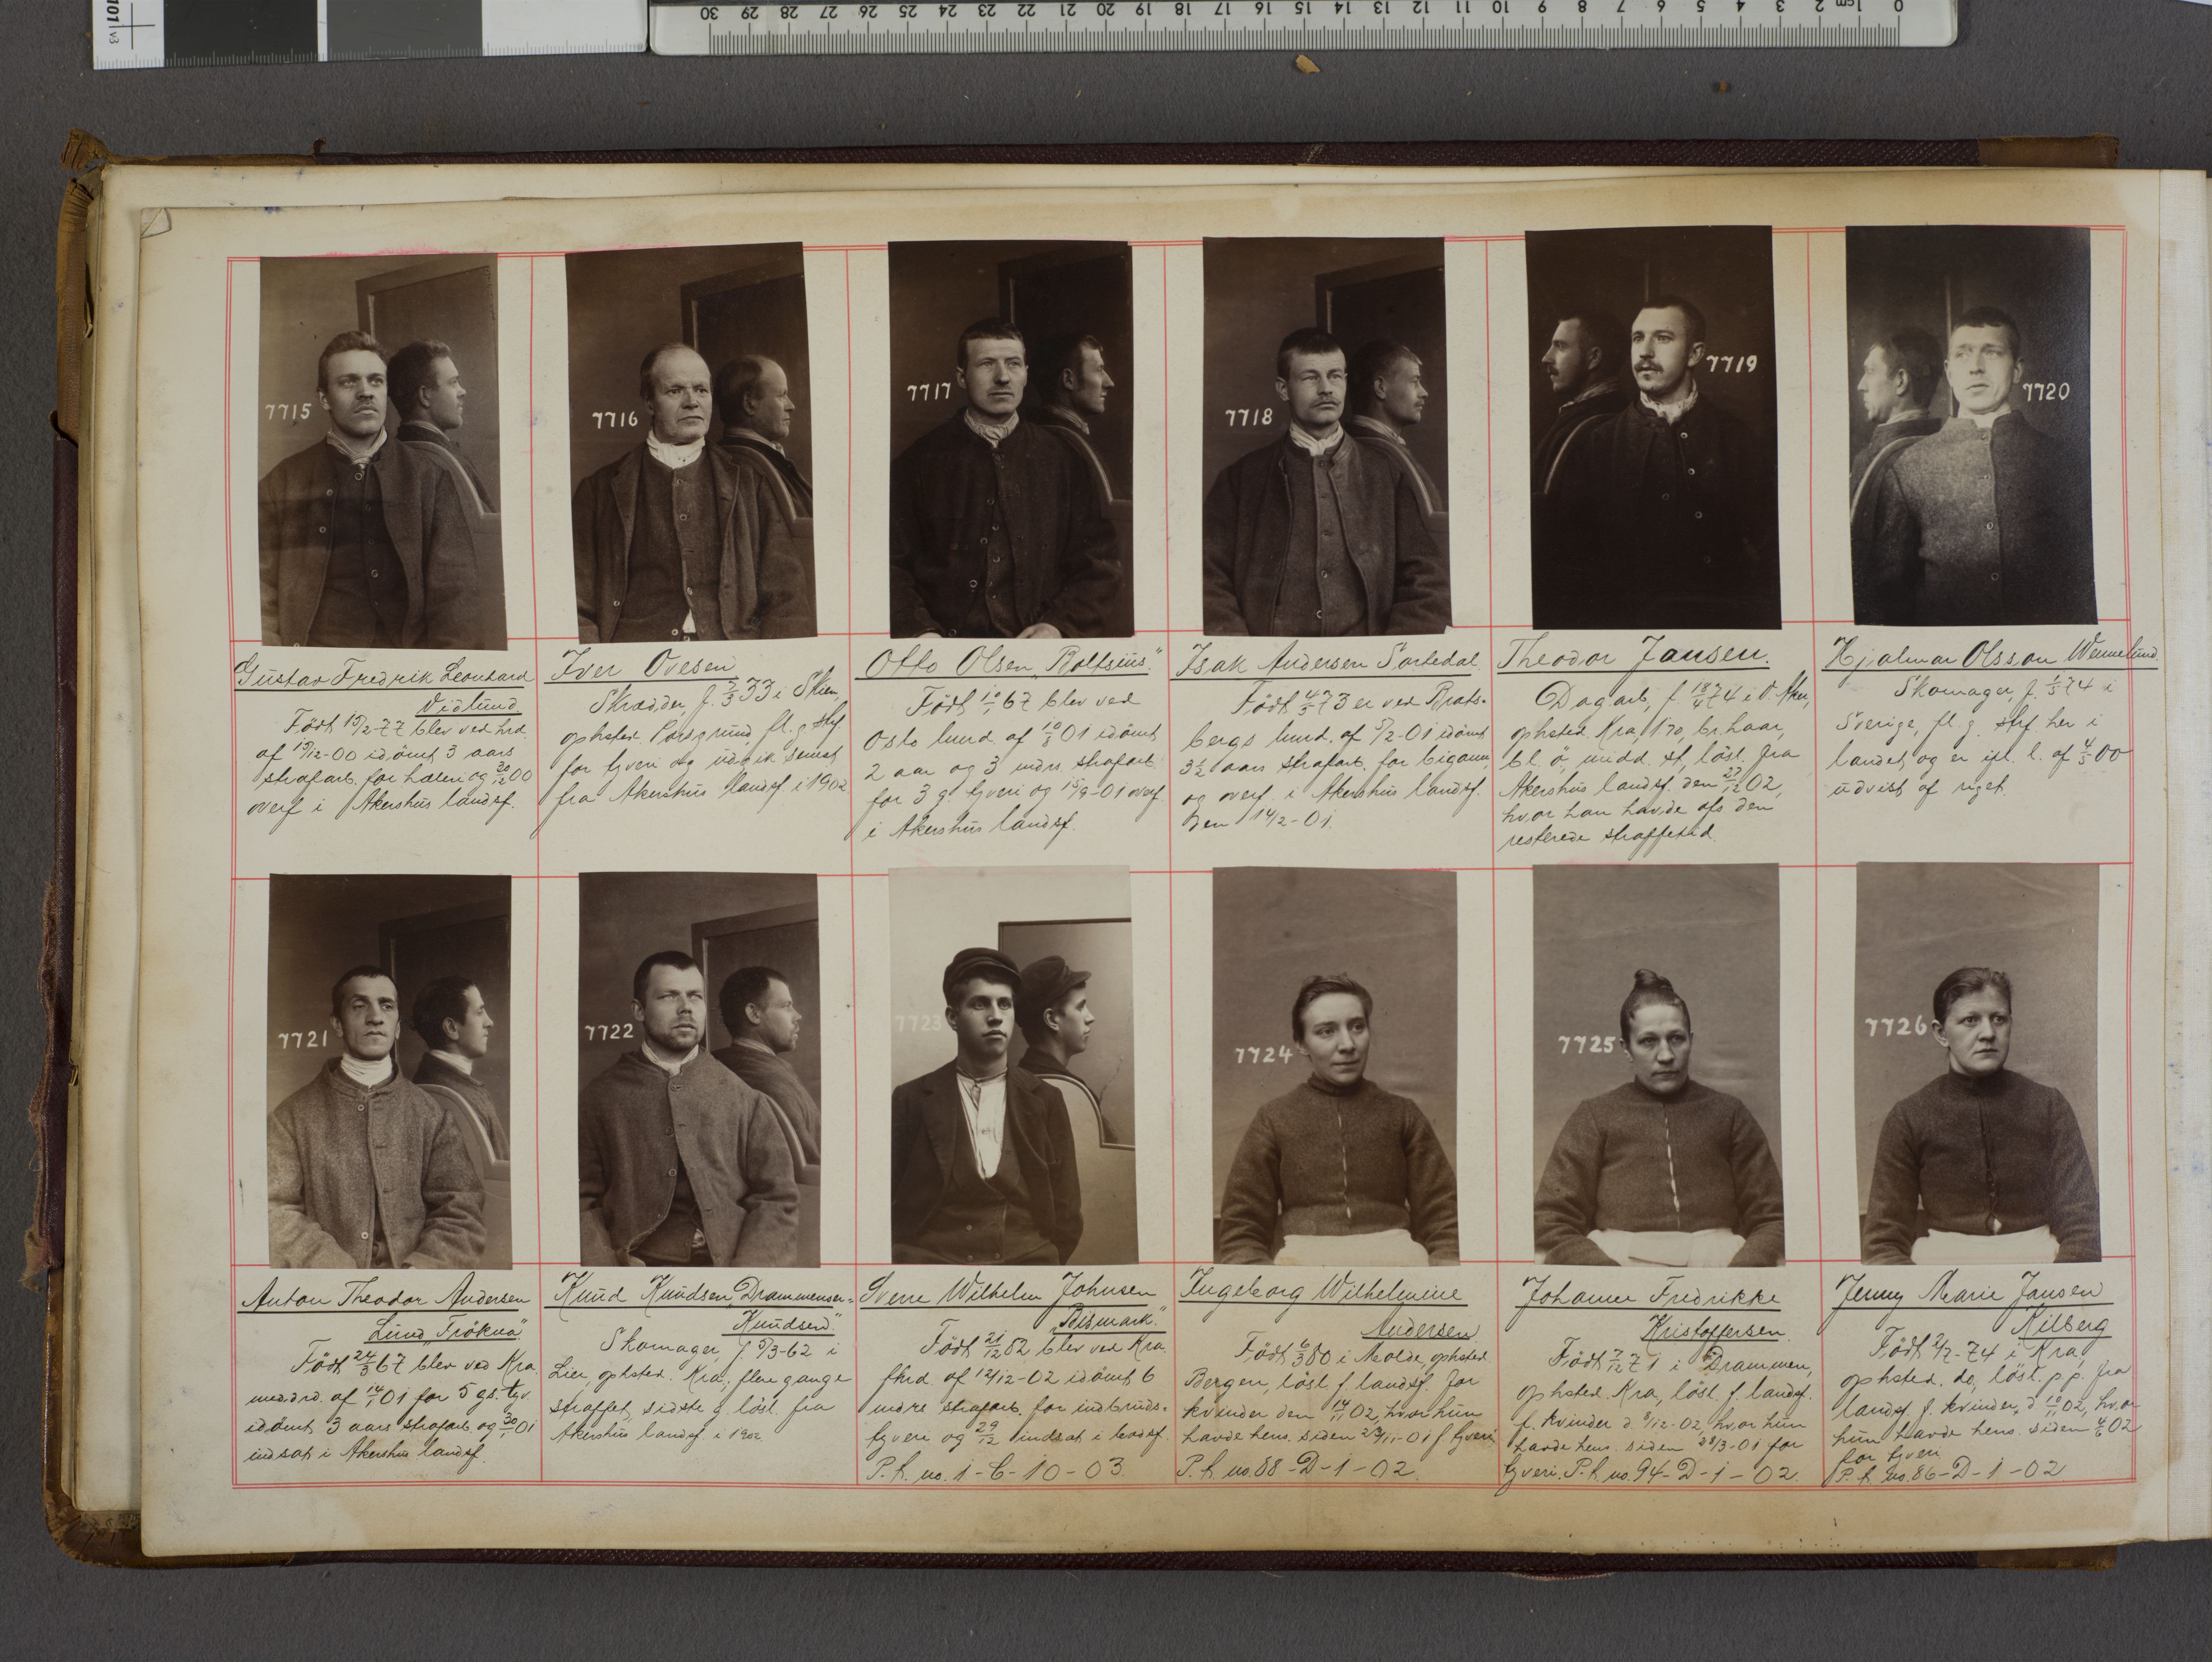 101 v3
0 1cm 2 3 4 5 6 7 8 9 10 11 12 13 14 15 16 17 18 19 20 21 22 23 24 25 26 27 28 29 30
7715
7716
7717
7718
7719
7720
Gustav Fredrik Leonhard
Vidlund
Født 15/2-77 blev ved hrd.
af 15/12-00 idømt 3 aars
strafarb. for hæleri og 30/12 00
overf i Akershus landsf.
Iver Ovesen
Skrædder, f. 2/3 33 i Skien,
ophsted. Porsgrund, fl. g. strf
for tyveri og udgik senest
fra Akershus landsf i 1902
Otto Olsen „Roltsius"
Født 10/1 67 blev ved
Oslo lund. af 10/8 01 idømt
2 aar og 3 mdrs. strafarb.
for 3 g. tyveri og 15/9-01 overf.
i Akershus landsf.
Isak Andersen Sartedal
Født 4/5 73 er ved Brats-
bergs lund. af 5/2-01 idømt
3½ aars strafarb. for bigami,
og overf. i Akershus landsf.
den 14/2-01.
Theodor Jansen.
Dagarb, f 18/4 74 i V. Aker,
ophsted. Kra, 170, br. haar,
bl. ø, midd. st, løsl. fra
Akershus landsf. den 27/12 02,
hvor han havde afs den
resterede straffetid.
Hjalmar Olsson Wennelund.
Skomager, f. 1/5 74 i
Sverige, fl. g. strf. her i
landet, og er ifl. l. af 4/5 00
udvist af riget.
7721
7722
7723
7724
7725
7726
Anton Theodor Andersen
Lund „Frøkna"
Født 24/3 67 blev ved Kra.
meddrd. af 14/1 01 for 5 gs. tyv.
idømt 3 aars strafarb. og 30/1 01
indsat i Akershus landsf.
Knud Knudsen „Drammenser-
Knudsen"
Skomager, f 5/3-62 i
Lier, ophsted. Kra, flere gange
straffet, sidste g. løsl. fra
Akershus landsf i 1902
Sverre Wilhelm Johnsen
„Bismark"
Født 21/12 82 blev ved Kra.
fhrd. af 12/12-02 idømt 6
mdrs strafarb. for indbruds-
tyveri og 29/12 indsat i bodsf.
P. k. no. 1-C-10-03.
Ingeborg Wilhelmine
Andersen
Født 6/3 80 i Molde, ophsted.
Bergen, løsl. f. landsf. for
kvinder den 14/11 02, hvor hun
havde hens. siden 23/11-01 f. tyveri
P. k. no. 88-D-1-02.
Johanne Fredrikke
Kristoffersen.
Født 7/12 71 i Drammen,
ophsted. Kra, løsl. f. landsf.
f. kvinder d. 8/12-02, hvor hun
havde hens. siden 28/3-01 for
tyveri. P. k. no. 94-D-1-02.
Jenny Marie Jansen
Kilberg
Født 2/7-74 i Kra,
ophsted. do, løsl. p. p. fra
landsf f. kvinder, d 10/11 02, hvor
hun havde hens. siden 4/6 02
for tyveri
P. k. no. 86-D-1-02